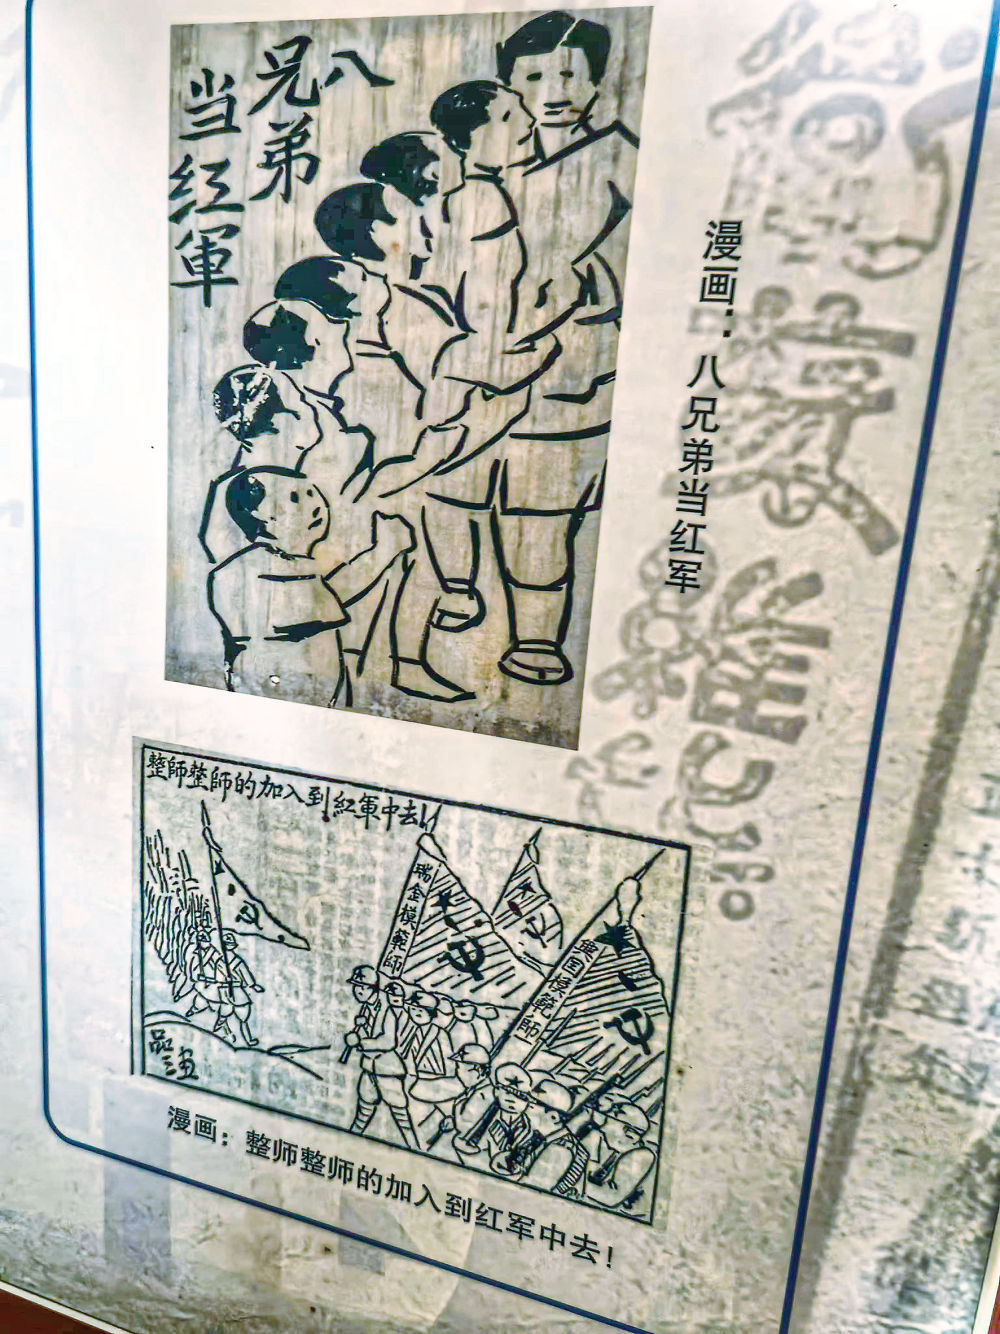 八
兄弟
当红軍
漫画：八兄弟当红军
整師整師的加入到紅軍中去!!
瑞金模範師
興国模範師
漫画：整师整师的加入到红军中去！